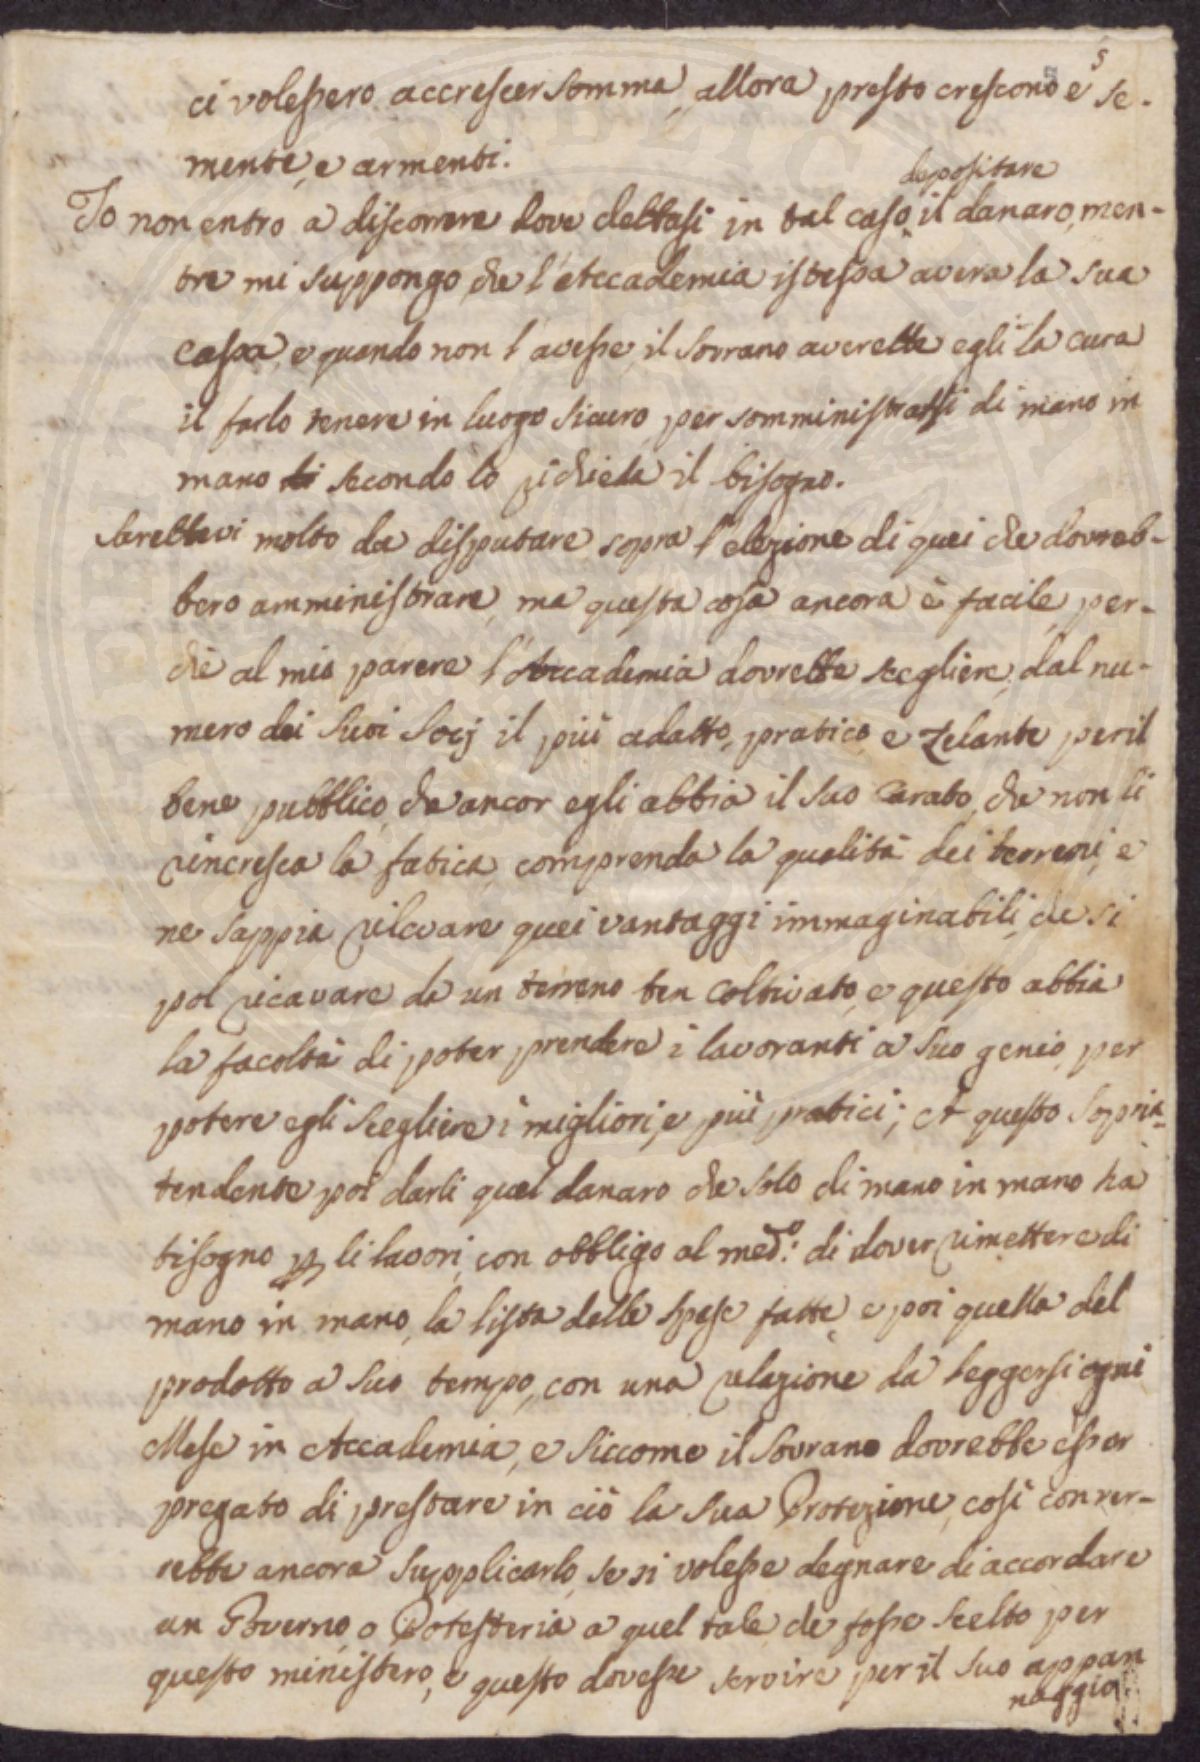 5
ci volessero accrescer somma, allora presto crescono e se-
mente, e armenti.
depositare
Io non entro a discorrere dove debbasi in tal caso il danaro, men-
tre mi suppongo, che l'Accademia istessa averà la sua
cassa, e quando non l'avesse, il Sovrano averebbe egli la cura
il farlo tenere in luogo sicuro, per somministrassi di mano in
mano secondo lo richieda il bisogno.
Sarebbevi molto da disputare sopra l'elezione di quei che dovreb-
bero amministrare, ma questa cosa ancora è facile, per-
chè al mio parere l'Accademia dovrebbe scegliere, dal nu-
mero dei Suoi Socj il più adatto, pratico, e Zelante per il
bene pubblico, che ancor egli abbia il suo Carato, che non li
rincresca la fatica, comprenda la qualità dei terreni, e
ne sappia rilevare quei vantaggi immaginabili, che si
pol ricavare da un terreno ben coltivato, e questo abbia
la facoltà di poter prendere i lavoranti a suo genio, per
potere egli scegliere i migliori, e più pratici; A questo Soprin-
tendente poi darli quel danaro che solo di mano in mano ha
bisogno p li lavori, con obbligo al med.o di dover rimettere di
mano in mano, la lista delle spese fatte, e poi quella del
prodotto a suo tempo, con una relazione da leggersi ogni
Mese in Accademia, e siccome il Sovrano dovrebbe esser
pregato di prestare in ciò la sua Protezione, così conver-
rebbe ancora supplicarlo, se si volesse degnare di accordare
un Governo, o Potesteria a quel tale, che fosse scelto per
questo ministero, e questo dovesse servire per il suo appan
naggio